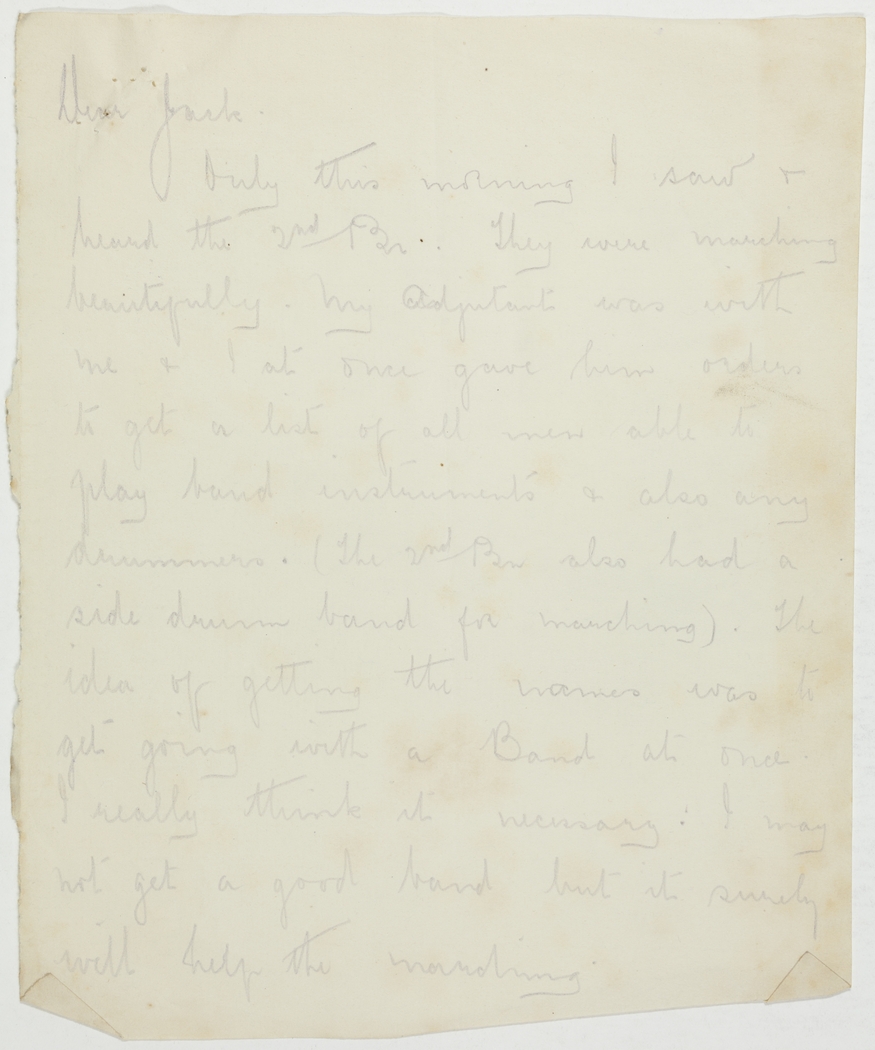 Dear Jack.
Only this morning I saw &
heard the 2nd Bn. They were marching
beautifully. My Adjutant was with
me & I at once gave him orders
to get a list of all men able to
play band instruments & also any
drummers. (The 2nd Bn also had a
side drum band for marching). The
idea of getting the names was to
get going with a Band at once.
I really think it necessary: I may
not get a good band but it surely
will help the marching.